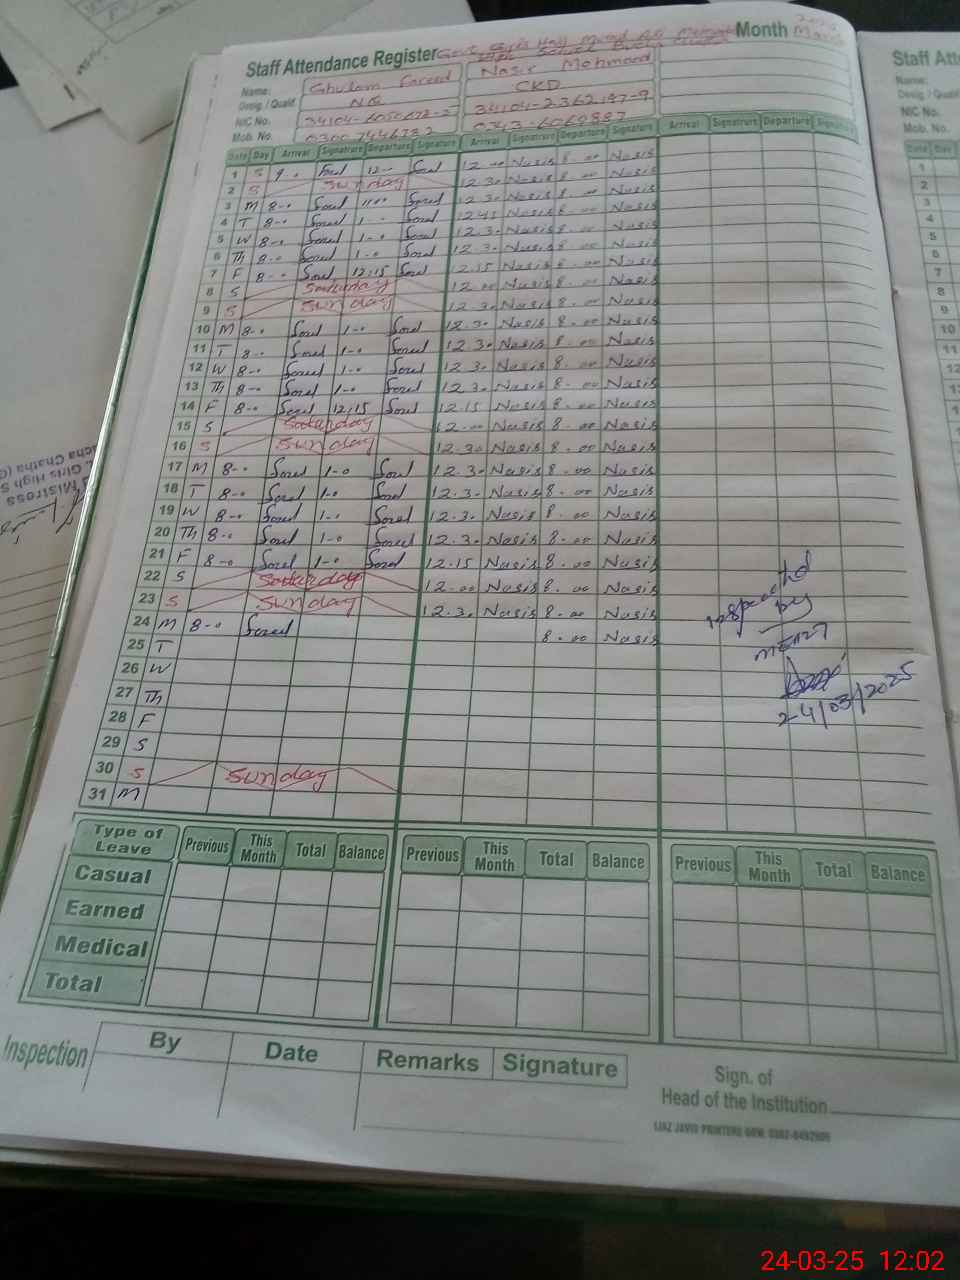 Staff Attendance Register Govt. Girls High School Month March
Name: Ghulam Fareed Nasir Mehmood
Desig. / Qualif. N.Q CKD
NIC No. 34104-2362197-9
Mob. No. 0300 7446782 0343-6069887
Date Day Arrival Signatrure Departure Signature Arrival Signatrure Departure Signature Arrival Signatrure Departure Signature
1 S 9-0 12-0 12-00 Nasir 8-00 Nasir
2 S Sunday 12.30 Nasir 8-00 Nasir
3 M 8-0 12.30 Nasir 8-00 Nasir
4 T 8-0 1-0 12.45 Nasir 8-00 Nasir
5 W 8-0 1-0 12.30 Nasir 8-00 Nasir
6 Th 8-0 1-0 12.30 Nasir 8-00 Nasir
7 F 8-0 12:15 12.15 Nasir 8-00 Nasir
8 S Saturday 12-00 Nasir 8-00 Nasir
9 S Sunday 12.30 Nasir 8-00 Nasir
10 M 8-0 1-0 12.30 Nasir 8-00 Nasir
11 T 8-0 1-0 12.30 Nasir 8-00 Nasir
12 W 8-0 1-0 12.30 Nasir 8-00 Nasir
13 Th 8-0 1-0 12.30 Nasir 8-00 Nasir
14 F 8-0 12:15 12.15 Nasir 8-00 Nasir
15 S Saturday 12-00 Nasir 8-00 Nasir
16 S Sunday 12.30 Nasir 8-00 Nasir
17 M 8-0 1-0 12.30 Nasir 8-00 Nasir
18 T 8-0 1-0 12.30 Nasir 8-00 Nasir
19 W 8-0 1-0 12.30 Nasir 8-00 Nasir
20 Th 8-0 1-0 12.30 Nasir 8-00 Nasir
21 F 8-0 1-0 12.15 Nasir 8-00 Nasir
22 S Saturday 12-00 Nasir 8-00 Nasir
23 S Sunday 12.30 Nasir 8-00 Nasir
24 M 8-0 8-00 Nasir
25 T
26 W
27 Th
28 F
29 S
30 S Sunday
31 M
Inspected
by
MEA27
24/03/2025
Type of Leave Previous This Month Total Balance Previous This Month Total Balance Previous This Month Total Balance
Casual
Earned
Medical
Total
Inspection By Date Remarks Signature
Sign. of
Head of the Institution
IJAZ JAVID PRINTERS GRW.
Staff Att
Name:
Desig. / Qualif
NIC No.
Mob. No.
Date Day
1
2
3
4
5
6
7
8
9
10
11
12
13
Mistress
Girls High S
cha Chatha (G
24-03-25 12:02